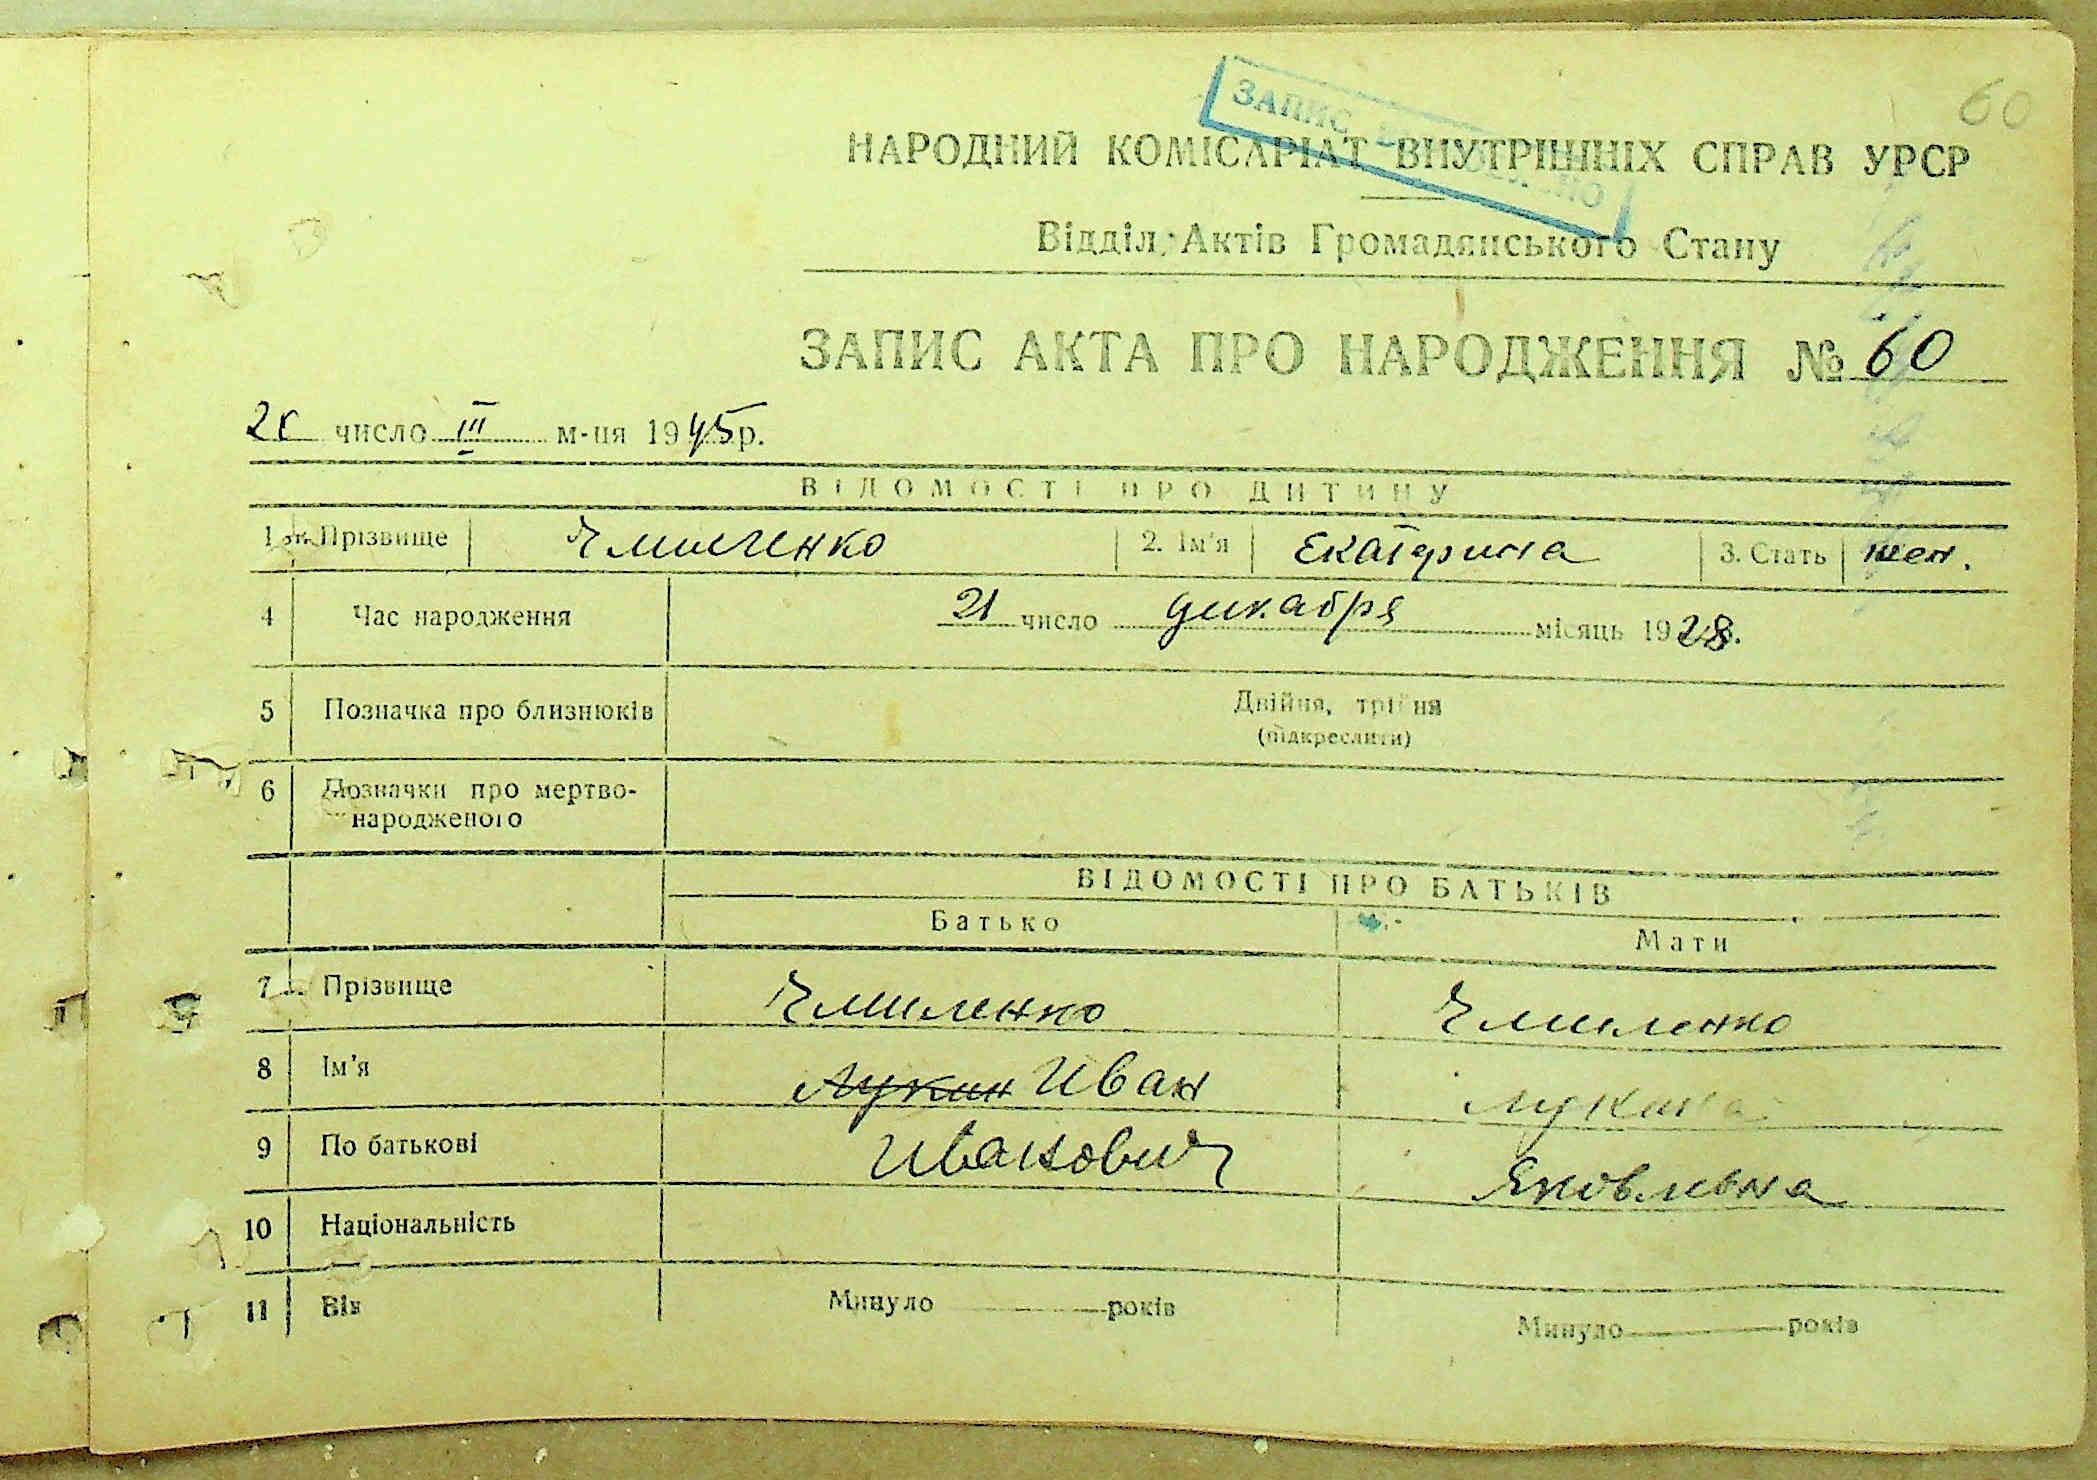 60
ЗАПИС
НАРОДНИЙ КОМІСАРІАТ ВНУТРІШНІХ СПРАВ УРСР
Відділ Актів Громадянського Стану
ЗАПИС АКТА ПРО НАРОДЖЕННЯ № 60
число III м-ця 1945 р.
ВІДОМОСТІ ПРО ДИТИНУ
1 Прізвище Чмиленко 2. Ім'я Екатерина 3. Стать жен.
4 Час народження 21 число декабря місяць 1928.
5 Позначка про близнюків Двійня, трійня
(підкреслити)
6 Позначки про мертво-
народженого
ВІДОМОСТІ ПРО БАТЬКІВ
Батько Мати
7 Прізвище Чмиленко Чмиленко
8 Ім'я Иван
9 По батькові Иванович Яковлевна
10 Національність
11 Вік Минуло років Минуло років